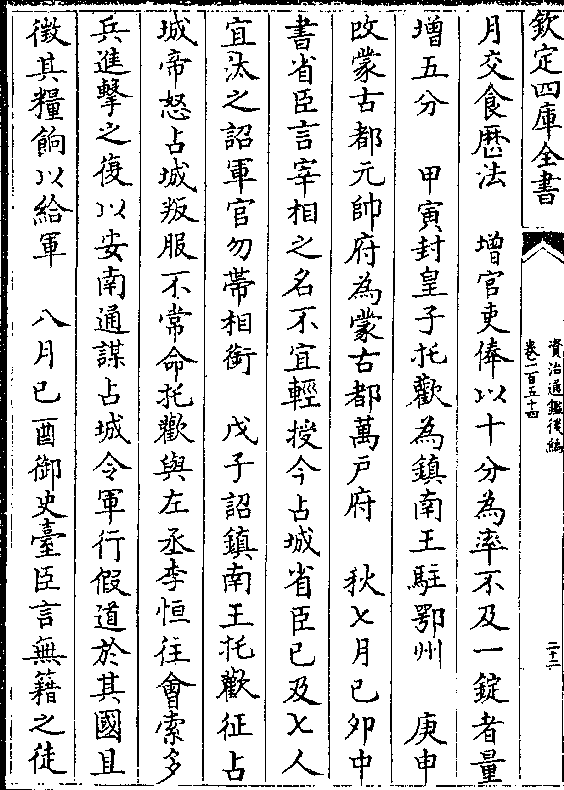 欽定四庫全書
資治通鑑後編
卷一百五十四
二十二
月交食歴法　增官吏俸以十分為率不及一錠者量
增五分　甲寅封皇子托歡為鎮南王駐鄂州　庚申
改蒙古都元帥府為蒙古都萬戸府　秋七月己卯中
書省臣言宰相之名不宜輕授今占城省臣已及七人
宜汰之詔軍官勿帶相銜　戊子詔鎮南王托歡征占
城帝怒占城叛服不常命托歡與左丞李恒往會索多
兵進擊之復以安南通謀占城令軍行假道於其國且
徵其糧餉以給軍　八月己酉御史臺臣言無籍之徒